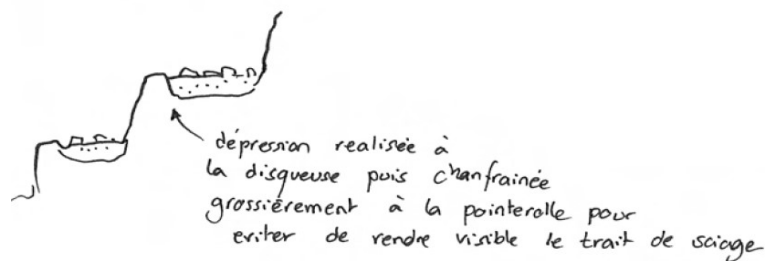 dépression realisée à
la disqueuse puis chanfrainée
grossièrement à la pointerolle pour
eviter de rendre visible le trait de sciage